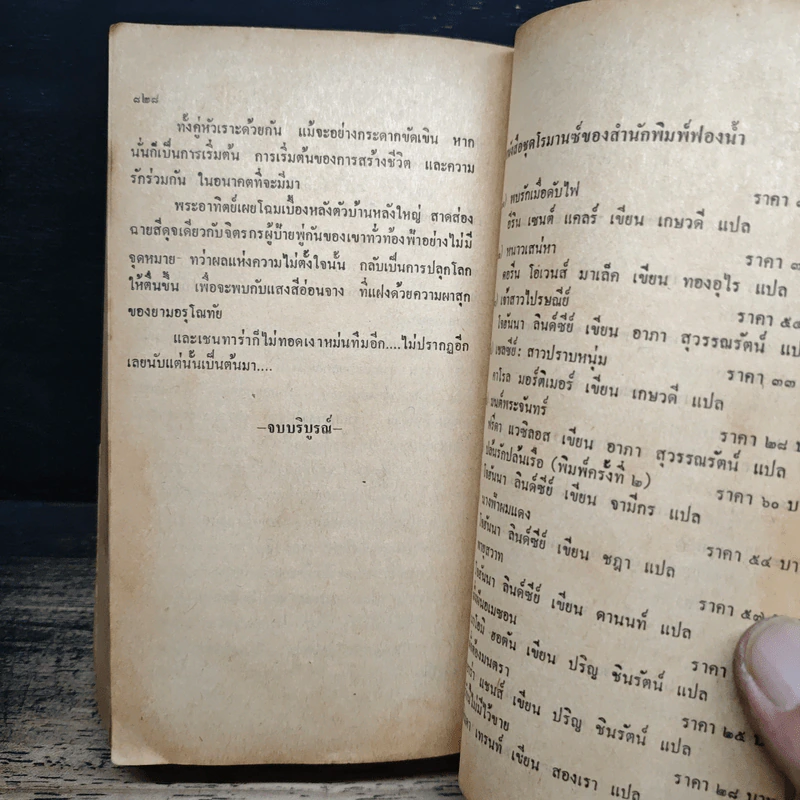 ๘๒๘
ทั้งคู่หัวเราะด้วยกัน แม้จะอย่างกระดากขัดเขิน หาก
นั่นก็เป็นการเริ่มต้น การเริ่มต้นของการสร้างชีวิต และความ
รักร่วมกัน ในอนาคตที่จะมีมา
พระอาทิตย์เผยโฉมเบื้องหลังตัวบ้านหลังใหญ่ สาดส่อง
ฉายสีดุจเดียวกับจิตรกรผู้ป้ายพู่กันของเขาทั่วท้องฟ้าอย่างไม่มี
จุดหมาย ทว่าผลแห่งความไม่ตั้งใจนั้น กลับเป็นการปลุกโลก
ให้ตื่นขึ้น เพื่อจะพบกับแสงสีอ่อนจาง ที่แฝงด้วยความผาสุก
ของยามอรุโณทัย
และเชนทาร่าก็ไม่ทอดเงาหม่นทึมอีก....ไม่ปรากฏอีก
เลยนับแต่นั้นเป็นต้นมา....
–จบบริบูรณ์–
หนังสือชุดโรมานซ์ของสำนักพิมพ์ฟองน้ำ
พบรักเมื่อดับไฟ ราคา
อีริน เซนต์ แคลร์ เขียน เกษวดี แปล
หนาวเสน่หา ราคา
คอรีน โอเวนส์ มาเล็ค เขียน ทองอุไร แปล
เจ้าสาวไปรษณีย์ ราคา
โจฮันนา ลินด์ซีย์ เขียน อาภา สุวรรณรัตน์ แปล
เชลซีย์: สาวปราบหนุ่ม ราคา ๓๓
คาโรล มอร์ติเมอร์ เขียน เกษวดี แปล
มนต์พระจันทร์ ราคา ๒๘
ฟรีดา แวซิลอส เขียน อาภา สุวรรณรัตน์ แปล
ปล้นรักปล้นเรือ (พิมพ์ครั้งที่ ๒) ราคา ๖๐
โจฮันนา ลินด์ซีย์ เขียน จามีกร แปล
นางฟ้าผมแดง ราคา ๕๔
โจฮันนา ลินด์ซีย์ เขียน ชฎา แปล
พายุสวาท ราคา ๕๗
โจฮันนา ลินด์ซีย์ เขียน ดานนท์ แปล
ราคา
ฮอตัน เขียน ปริญ ชินรัตน์ แปล
ต้องมนตรา ราคา ๒๕
แชนส์ เขียน ปริญ ชินรัตน์ แปล
ไม่มีไว้ขาย ราคา ๒๘ บาท
เทรนท์ เขียน สองเรา แปล